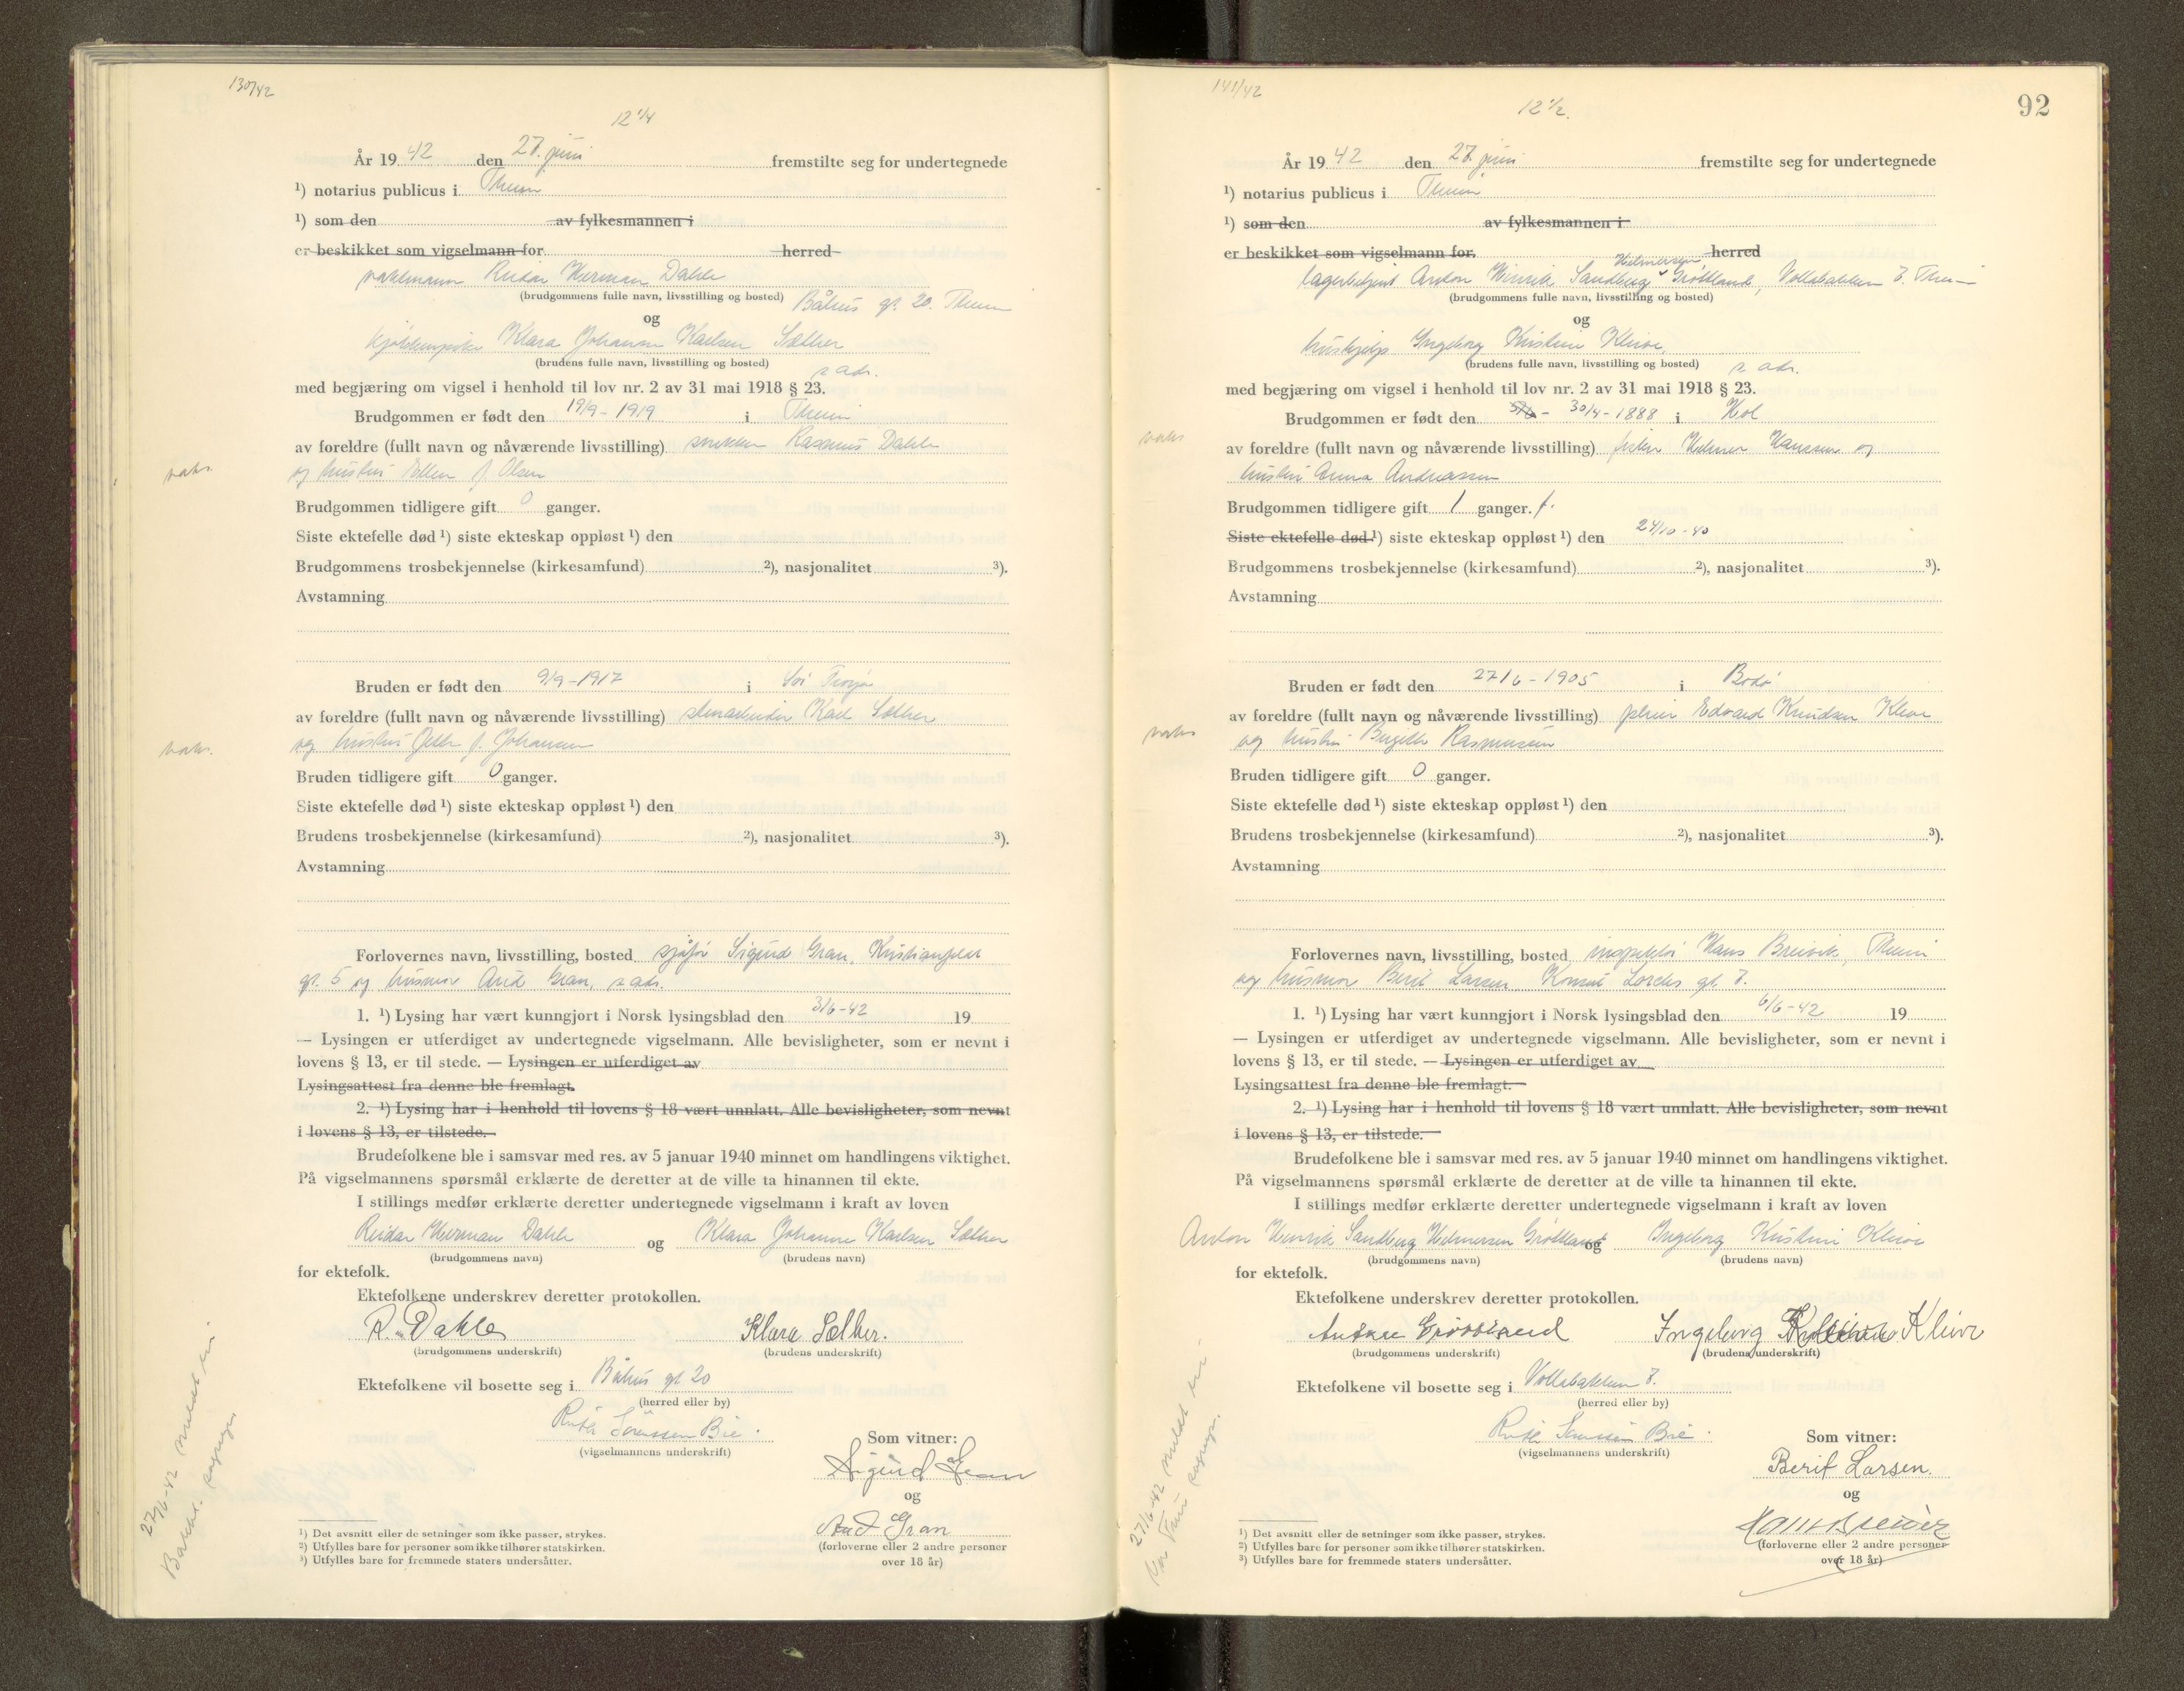 130/42
12 1/4
År 19 42 den 27. juni fremstilte seg for undertegnede
¹) notarius publicus i Thrum
¹) som den av fylkesmannen i
er beskikket som vigselmann for herred
Reidar Herman Dahle
(brudgommens fulle navn, livsstilling og bosted) Båhus gt. 20. Thrum
og
Klara Johanne Karlsen Sæther
(brudens fulle navn, livsstilling og bosted) s adr.
med begjæring om vigsel i henhold til lov nr. 2 av 31 mai 1918 § 23.
Brudgommen er født den 19/9 - 1919 i Thrum
av foreldre (fullt navn og nåværende livsstilling) snekker Rasmus Dahle
og hustru Ellen f. Olsen
Brudgommen tidligere gift 0 ganger.
Siste ektefelle død ¹) siste ekteskap oppløst ¹) den
Brudgommens trosbekjennelse (kirkesamfund) ²), nasjonalitet ³).
Avstamning
Bruden er født den 9/9 - 1917 i Sør Frøya
av foreldre (fullt navn og nåværende livsstilling) stenarbeider Karl Sæther
og hustru f. Johansen
Bruden tidligere gift 0 ganger.
Siste ektefelle død ¹) siste ekteskap oppløst ¹) den
Brudens trosbekjennelse (kirkesamfund) ²), nasjonalitet ³).
Avstamning
Forlovernes navn, livsstilling, bosted sjåfør Sigurd Gran, Kristianfeldt
gt. 5 og husmor Aud Gran, s adr.
1. ¹) Lysing har vært kunngjort i Norsk lysingsblad den 3/6-42 19
— Lysingen er utferdiget av undertegnede vigselmann. Alle bevisligheter, som er nevnt i
lovens § 13, er til stede. — Lysingen er utferdiget av
Lysingsattest fra denne ble fremlagt.
2. ¹) Lysing har i henhold til lovens § 18 vært unnlatt. Alle bevisligheter, som nevnt
i lovens § 13, er tilstede.
Brudefolkene ble i samsvar med res. av 5 januar 1940 minnet om handlingens viktighet.
På vigselmannens spørsmål erklærte de deretter at de ville ta hinannen til ekte.
I stillings medfør erklærte deretter undertegnede vigselmann i kraft av loven
Reidar Herman Dahle og Klara Johanne Karlsen Sæther
(brudgommens navn) (brudens navn)
for ektefolk.
Ektefolkene underskrev deretter protokollen.
R. Dahle Klara Sæther.
(brudgommens underskrift) (brudens underskrift)
Ektefolkene vil bosette seg i Båhus gt 20
(herred eller by)
Sørenssen Bie.
(vigselmannens underskrift)
Som vitner:
Sigurd Gran
og
Aud Gran
(forloverne eller 2 andre personer
over 18 år)
¹) Det avsnitt eller de setninger som ikke passer, strykes.
²) Utfylles bare for personer som ikke tilhører statskirken.
³) Utfylles bare for fremmede staters undersåtter.
27/6-42 meldt
141/42
12 1/2.
92
År 19 42 den 27. juni fremstilte seg for undertegnede
¹) notarius publicus i Thrum
¹) som den av fylkesmannen i
er beskikket som vigselmann for herred
Helmersen
lagerbetjent Anton Henrik Sandberg Grøttland, Vollabakken 7. Thrum
(brudgommens fulle navn, livsstilling og bosted)
og
hushjelp Ingeborg Kristine Kleive
(brudens fulle navn, livsstilling og bosted) s adr.
med begjæring om vigsel i henhold til lov nr. 2 av 31 mai 1918 § 23.
Brudgommen er født den 30/4 - 1888 i Hol
av foreldre (fullt navn og nåværende livsstilling) fisker Helmer Hanssen og
hustru Anna Andreassen
Brudgommen tidligere gift 1 ganger. f.
Siste ektefelle død ¹) siste ekteskap oppløst ¹) den 24/10 - 40
Brudgommens trosbekjennelse (kirkesamfund) ²), nasjonalitet ³).
Avstamning
Bruden er født den 27/6 - 1905 i Bodø
av foreldre (fullt navn og nåværende livsstilling) Edvard Knudsen Kleive
og hustru Birgitte Rasmussen
Bruden tidligere gift 0 ganger.
Siste ektefelle død ¹) siste ekteskap oppløst ¹) den
Brudens trosbekjennelse (kirkesamfund) ²), nasjonalitet ³).
Avstamning
Forlovernes navn, livsstilling, bosted inspektør Hans Breivik, Thrum
og husmor Berit Larsen Konsul Lorcks gt. 7.
1. ¹) Lysing har vært kunngjort i Norsk lysingsblad den 6/6-42 19
— Lysingen er utferdiget av undertegnede vigselmann. Alle bevisligheter, som er nevnt i
lovens § 13, er til stede. — Lysingen er utferdiget av
Lysingsattest fra denne ble fremlagt.
2. ¹) Lysing har i henhold til lovens § 18 vært unnlatt. Alle bevisligheter, som nevnt
i lovens § 13, er tilstede.
Brudefolkene ble i samsvar med res. av 5 januar 1940 minnet om handlingens viktighet.
På vigselmannens spørsmål erklærte de deretter at de ville ta hinannen til ekte.
I stillings medfør erklærte deretter undertegnede vigselmann i kraft av loven
Anton Henrik Sandberg Helmersen Grøttland og Ingeborg Kristine Kleive
(brudgommens navn) (brudens navn)
for ektefolk.
Ektefolkene underskrev deretter protokollen.
Grøttland Ingeborg Kleive
(brudgommens underskrift) (brudens underskrift)
Ektefolkene vil bosette seg i Vollabakken 7.
(herred eller by)
Bie.
(vigselmannens underskrift)
Som vitner:
Berit Larsen.
og
(forloverne eller 2 andre personer
over 18 år)
¹) Det avsnitt eller de setninger som ikke passer, strykes.
²) Utfylles bare for personer som ikke tilhører statskirken.
³) Utfylles bare for fremmede staters undersåtter.
27/6-42 meldt